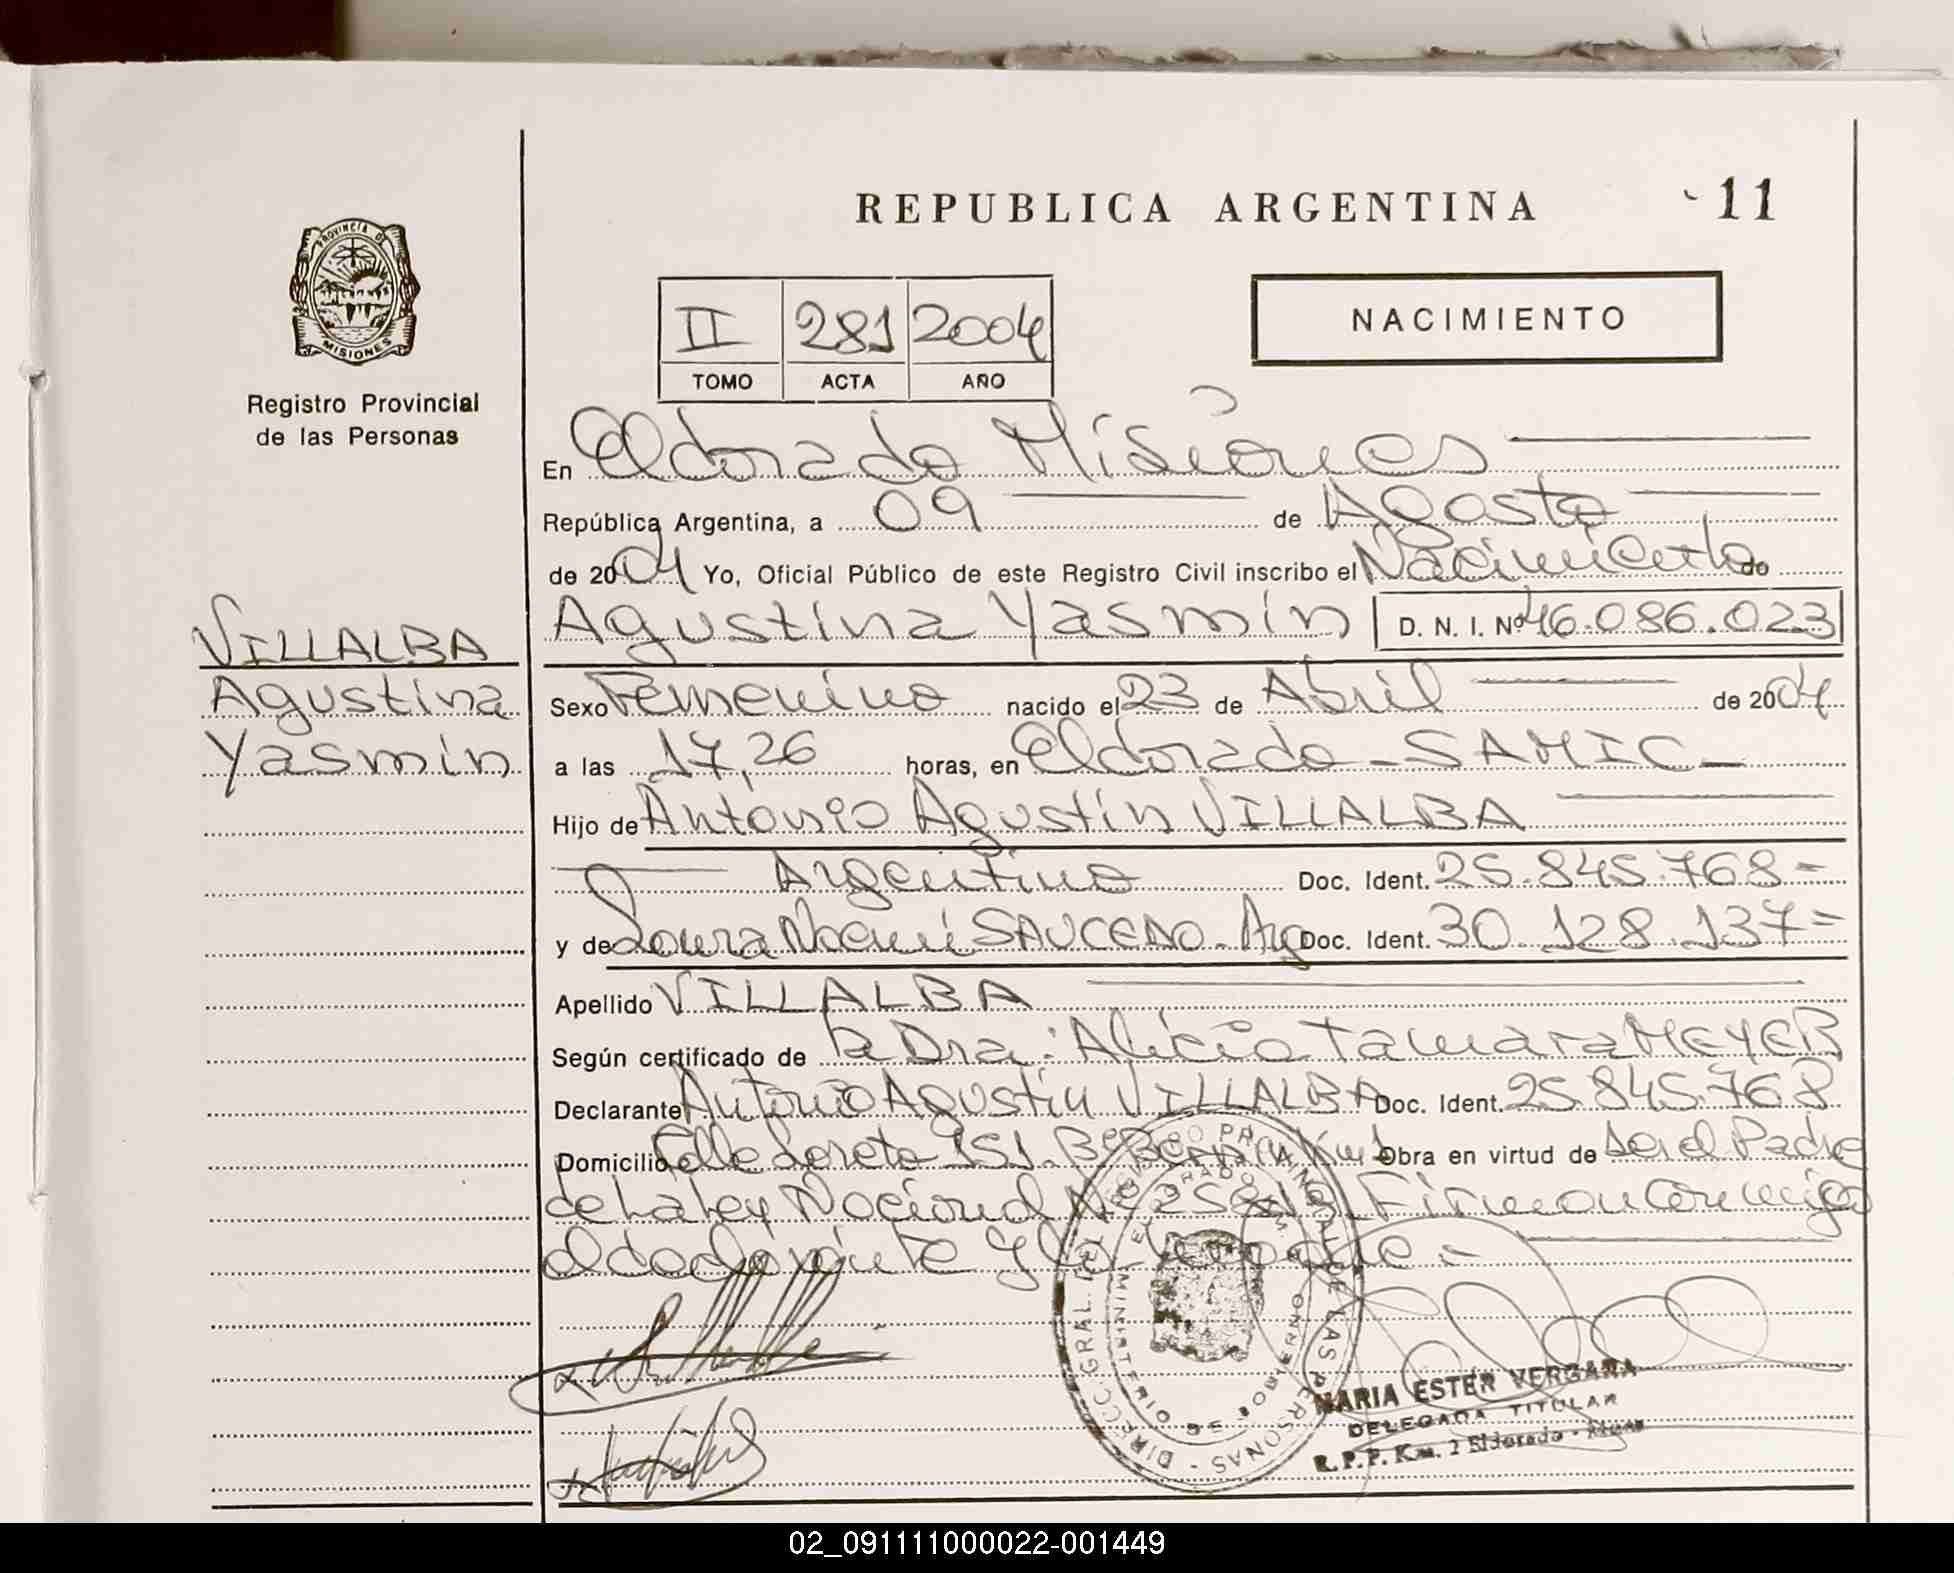 REPUBLICA ARGENTINA
11
PROVINCIA DE
MISIONES
Registro Provincial
de las Personas
II 281 2004
TOMO ACTA AÑO
NACIMIENTO
En Eldorado Misiones
República Argentina, a 09 de Agosto
de 2004 Yo, Oficial Público de este Registro Civil inscribo el Nacimiento de
Agustina Yasmín D. N. I. Nº 46.086.023
VILLALBA
Agustina
Yasmín
Sexo Femenino nacido el 23 de Abril de 2004
a las 17,26 horas, en Eldorado - SAMIC
Hijo de Antonio Agustín VILLALBA
Argentino Doc. Ident. 25.845.768
y de Laura Noemí SAUCEDO - Arg Doc. Ident. 30.128.137
Apellido VILLALBA
Según certificado de la Dra: Alicia Tamara MEYER
Declarante Antonio Agustín VILLALBA Doc. Ident. 25.845.768
Domicilio Calle Loreto 151. Bº Obra en virtud de ser el Padre
de la ley Nacional Firman conmigo
el declarante y la
DIRECC. GRAL. DEL REGISTRO PROVINCIAL DE LAS PERSONAS
MARIA ESTER VERGARA
DELEGADA TITULAR
R.P.P. Km. 2 Eldorado - Mnes
02_091111000022-001449